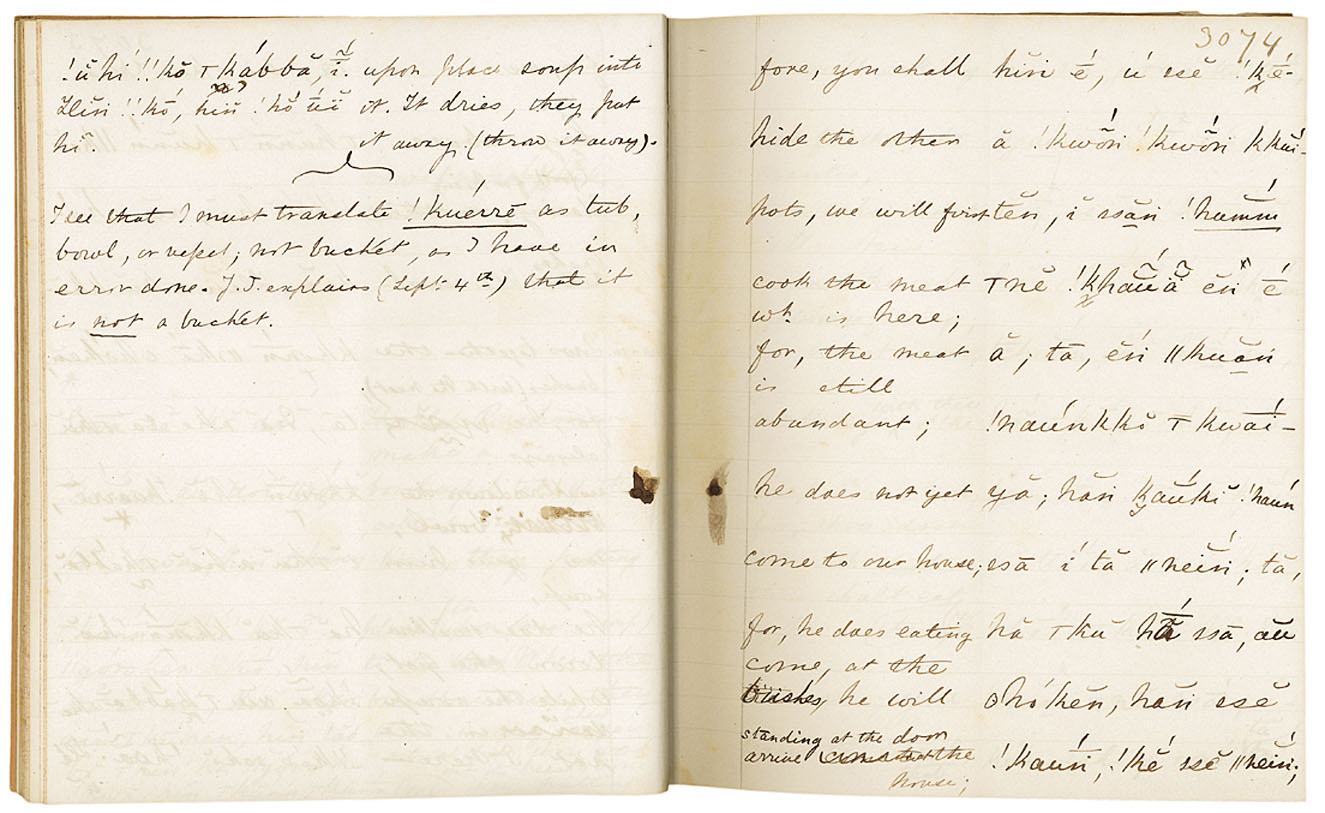 !ŭhí !!kō ⊤ kábbă, ĩ. upon place soup into
Hěń !!kó, hiń !hǒ ŭĭ it. It dries, they put
hĭ. it away. (throw it away).
I see that I must translate !kuérrĕ as tub,
bowl, or vessel; not bucket, as I have in
error done. J.T. explains (Septr 4th) that it
is not a bucket.
3074
fore, you shall hiń é, ú ssĕ !kĕ-
hide the other ā !kwóń !kwóń kkŭi-
pots, we will first tĕn, ĭ ssăń !hamm
cook the meat ⊤nĕ !khauă ĕń é
wh. is here;
for, the meat ā; tā, ĕń ǁkuań
is still
abundant; !naúnkkō ⊤ kwăí-
he does not yet yā; hăń kaŭkĭ !naun
come to our house; ssā í tā ǁneiń; tā,
for, he does eating hā ⊤ kŭ hā ssā, au
come, at the
bushes, he will ʘhókĕn, hăń ssĕ
standing at the door
arrive the !kauń, !kĕ ssĕ ǁneiń;
house;